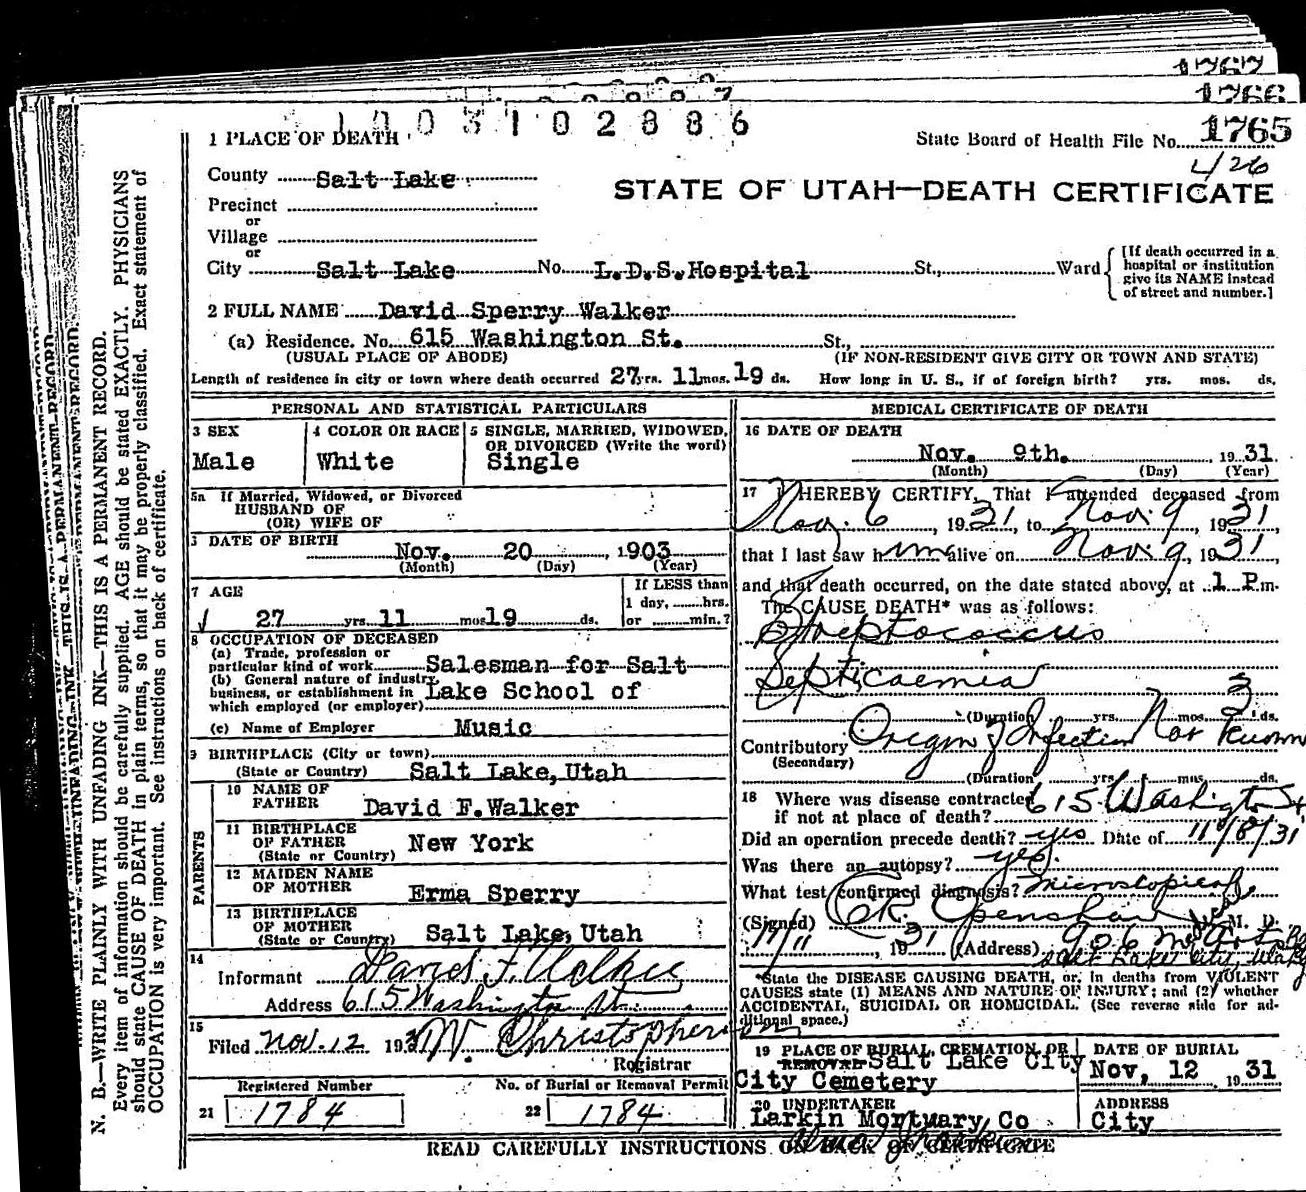 1767
1766
1003102886
1 PLACE OF DEATH
State Board of Health File No. 1765
426
County Salt Lake
STATE OF UTAH—DEATH CERTIFICATE
Precinct
or
Village
or
City Salt Lake No. L.D.S. Hospital St., Ward
[If death occurred in a
hospital or institution
give its NAME instead
of street and number.]
2 FULL NAME David Sperry Walker
(a) Residence. No. 615 Washington St. St.,
(USUAL PLACE OF ABODE) (IF NON-RESIDENT GIVE CITY OR TOWN AND STATE)
Length of residence in city or town where death occurred 27 yrs. 11 mos. 19 ds. How long in U. S., if of foreign birth? yrs. mos. ds.
PERSONAL AND STATISTICAL PARTICULARS
3 SEX
Male
4 COLOR OR RACE
White
5 SINGLE, MARRIED, WIDOWED,
OR DIVORCED (Write the word)
Single
5a If Married, Widowed, or Divorced
HUSBAND OF
(OR) WIFE OF
DATE OF BIRTH
Nov. 20, 1903
(Month) (Day) (Year)
7 AGE
27 yrs. 11 mos 19 ds.
If LESS than
1 day, hrs.
or min.?
8 OCCUPATION OF DECEASED
(a) Trade, profession or
particular kind of work Salesman for Salt
(b) General nature of industry,
business, or establishment in Lake School of
which employed (or employer)
(c) Name of Employer Music
9 BIRTHPLACE (City or town)
(State or Country) Salt Lake, Utah
PARENTS
10 NAME OF
FATHER David F. Walker
11 BIRTHPLACE
OF FATHER New York
(State or Country)
12 MAIDEN NAME
OF MOTHER Erma Sperry
13 BIRTHPLACE
OF MOTHER Salt Lake, Utah
(State or Country)
14
Informant David F. Walker
Address 615 Washington St.
15
Filed Nov. 12 1931 W. Christopherson
Registrar
Registered Number
21 1784
No. of Burial or Removal Permit
22 1784
MEDICAL CERTIFICATE OF DEATH
16 DATE OF DEATH
Nov. 9th. 1931
(Month) (Day) (Year)
17 I HEREBY CERTIFY, That I attended deceased from
Nov. 6, 1931, to Nov. 9, 1931,
that I last saw him alive on Nov. 9, 1931,
and that death occurred, on the date stated above, at 1 P.m.
The CAUSE DEATH* was as follows:
Streptococcus
Septicaemia
(Duration yrs. mos. 3 ds.
Contributory Origin of Infection Not Known
(Secondary)
(Duration yrs. mos. ds.
18 Where was disease contracted 615 Washington St
if not at place of death?
Did an operation precede death? yes Date of 11/8/31
Was there an autopsy? yes.
What test confirmed diagnosis? microscopical
(Signed) C.R. Openshaw M. D.
11/11, 1931 (Address) 906 Medical Arts Bldg
Salt Lake City, Utah
*State the DISEASE CAUSING DEATH, or, in deaths from VIOLENT
CAUSES state (1) MEANS AND NATURE OF INJURY; and (2) whether
ACCIDENTAL, SUICIDAL OR HOMICIDAL. (See reverse side for ad-
ditional space.)
19 PLACE OF BURIAL, CREMATION OR
REMOVAL Salt Lake City
City Cemetery
DATE OF BURIAL
Nov, 12, 1931
20 UNDERTAKER
Larkin Mortuary Co
ADDRESS
City
READ CAREFULLY INSTRUCTIONS ON BACK OF CERTIFICATE
N. B.—WRITE PLAINLY WITH UNFADING INK—THIS IS A PERMANENT RECORD.
Every item of information should be carefully supplied. AGE should be stated EXACTLY. PHYSICIANS
should state CAUSE OF DEATH in plain terms, so that it may be properly classified. Exact statement of
OCCUPATION is very important. See instructions on back of certificate.